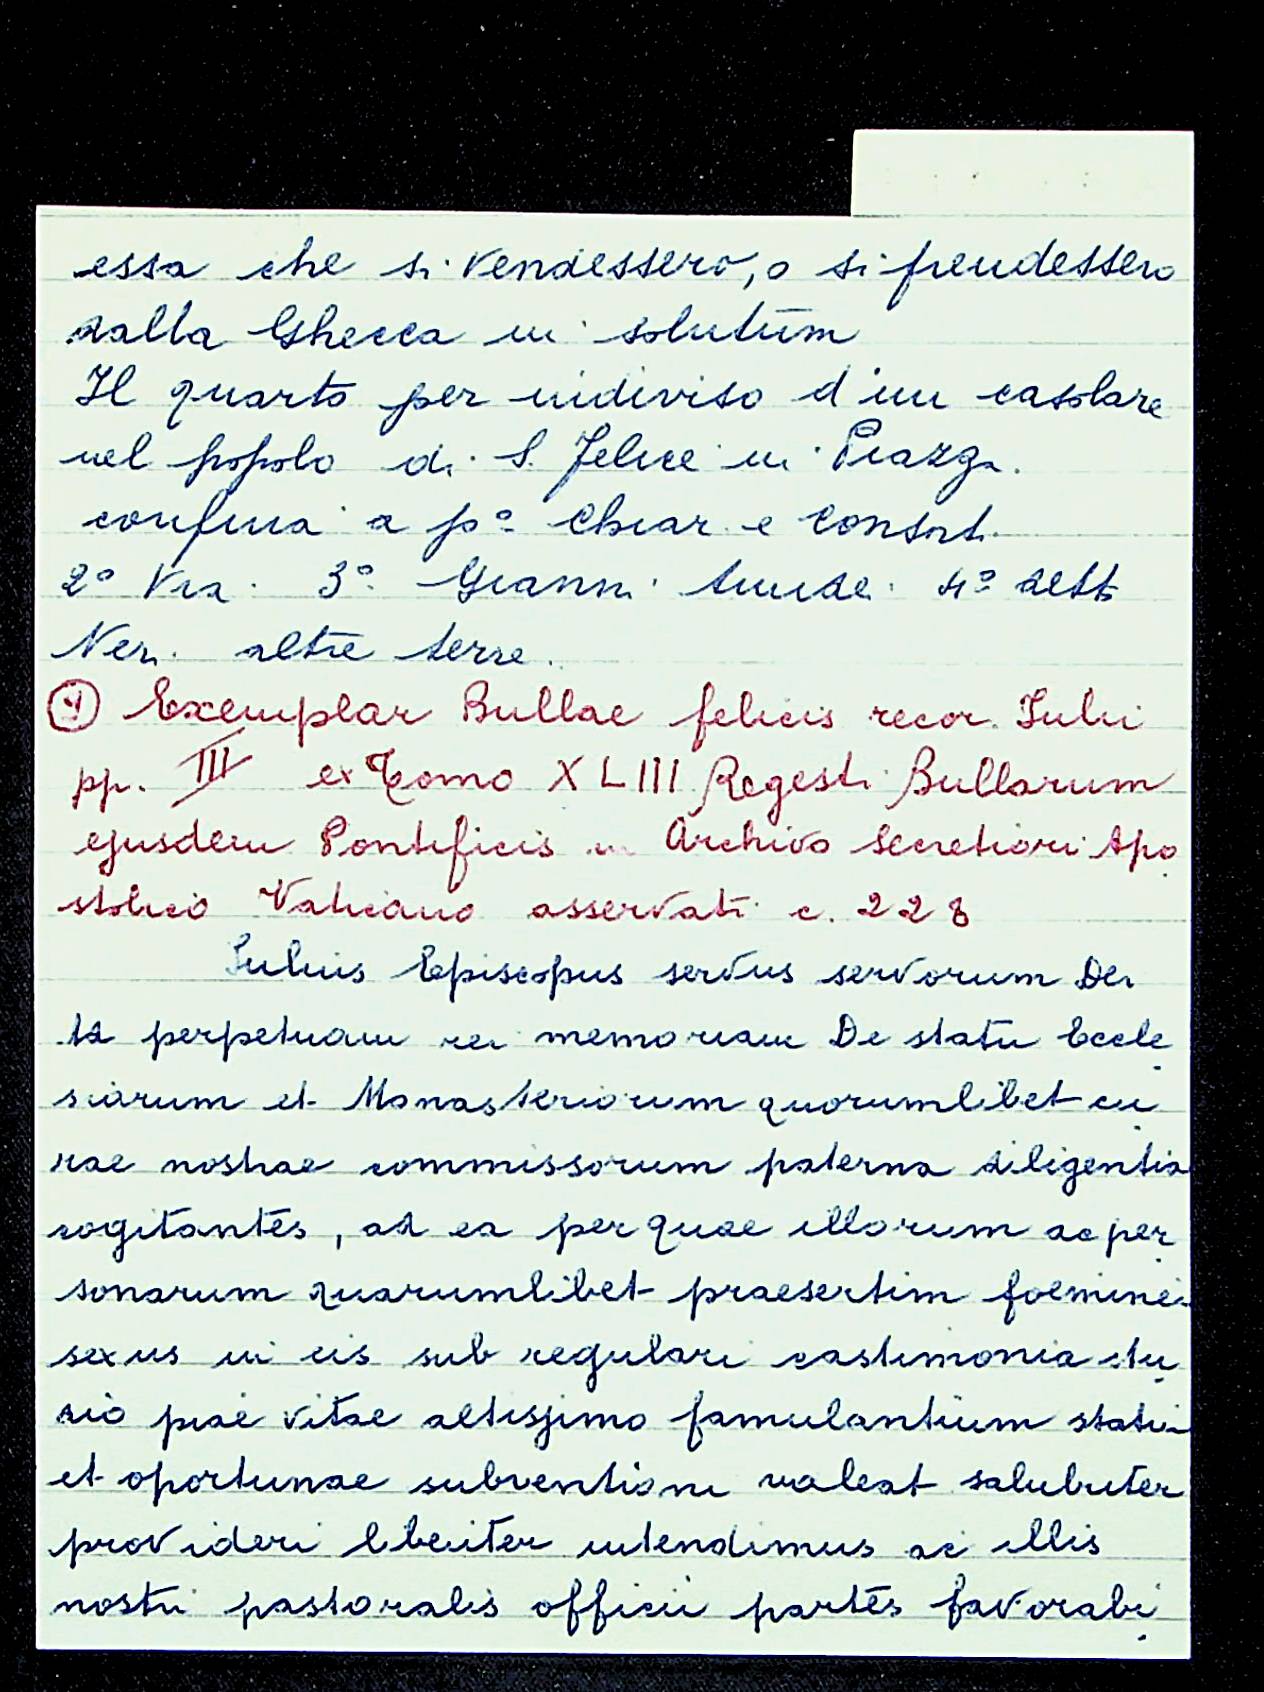 essa che si vendessero, o si prendessero
dalla Ghecca in solutum
Il quarto per indiviso d'un casolare
nel popolo di S. Felice in Piazza.
confina a pº Chiar. e Consort.
2º Via. 3º Gianni 4º dett
Neri. altre terre.
④ Exemplar Bullae felicis recor. Iulii
pp. III ex Tomo XLIII Regesti Bullarum
ejusdem Pontificis in Archivo Secretiori Apo
stolico Vaticano asservati c. 228
Iulius Episcopus servus servorum Dei
Ad perpetuam rei memoriam De statu Eccle
siarum et Monasteriorum quorumlibet cu
rae nostrae commissorum paterna diligentia
cogitantes, ad ea per quae illorum ac per
sonarum quarumlibet praesertim foeminei
sexus in eis sub regulari castimonia stu
dio piae vitae altissimo famulantium statui
et oportunae subventioni valeat salubriter
provideri libenter intendimus ac illis
nostri pastoralis officii partes favorabi